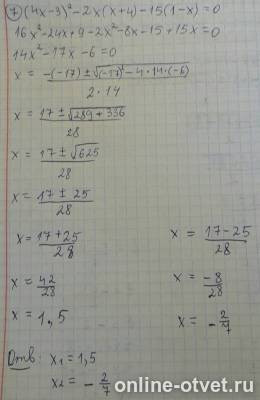 7) (4x-3)²-2x(x+4)-15(1-x)=0
16x²-24x+9-2x²-8x-15+15x=0
14x²-17x-6=0
x = (-(-17) ± √((-17)²-4·14·(-6))) / (2·14)
x = (17 ± √(289+336)) / 28
x = (17 ± √625) / 28
x = (17 ± 25) / 28
x = (17+25) / 28
x = (17-25) / 28
x = 42/28
x = -8/28
x = 1,5
x = -2/7
Отв: x₁ = 1,5
x₂ = -2/7
online-otvet.ru